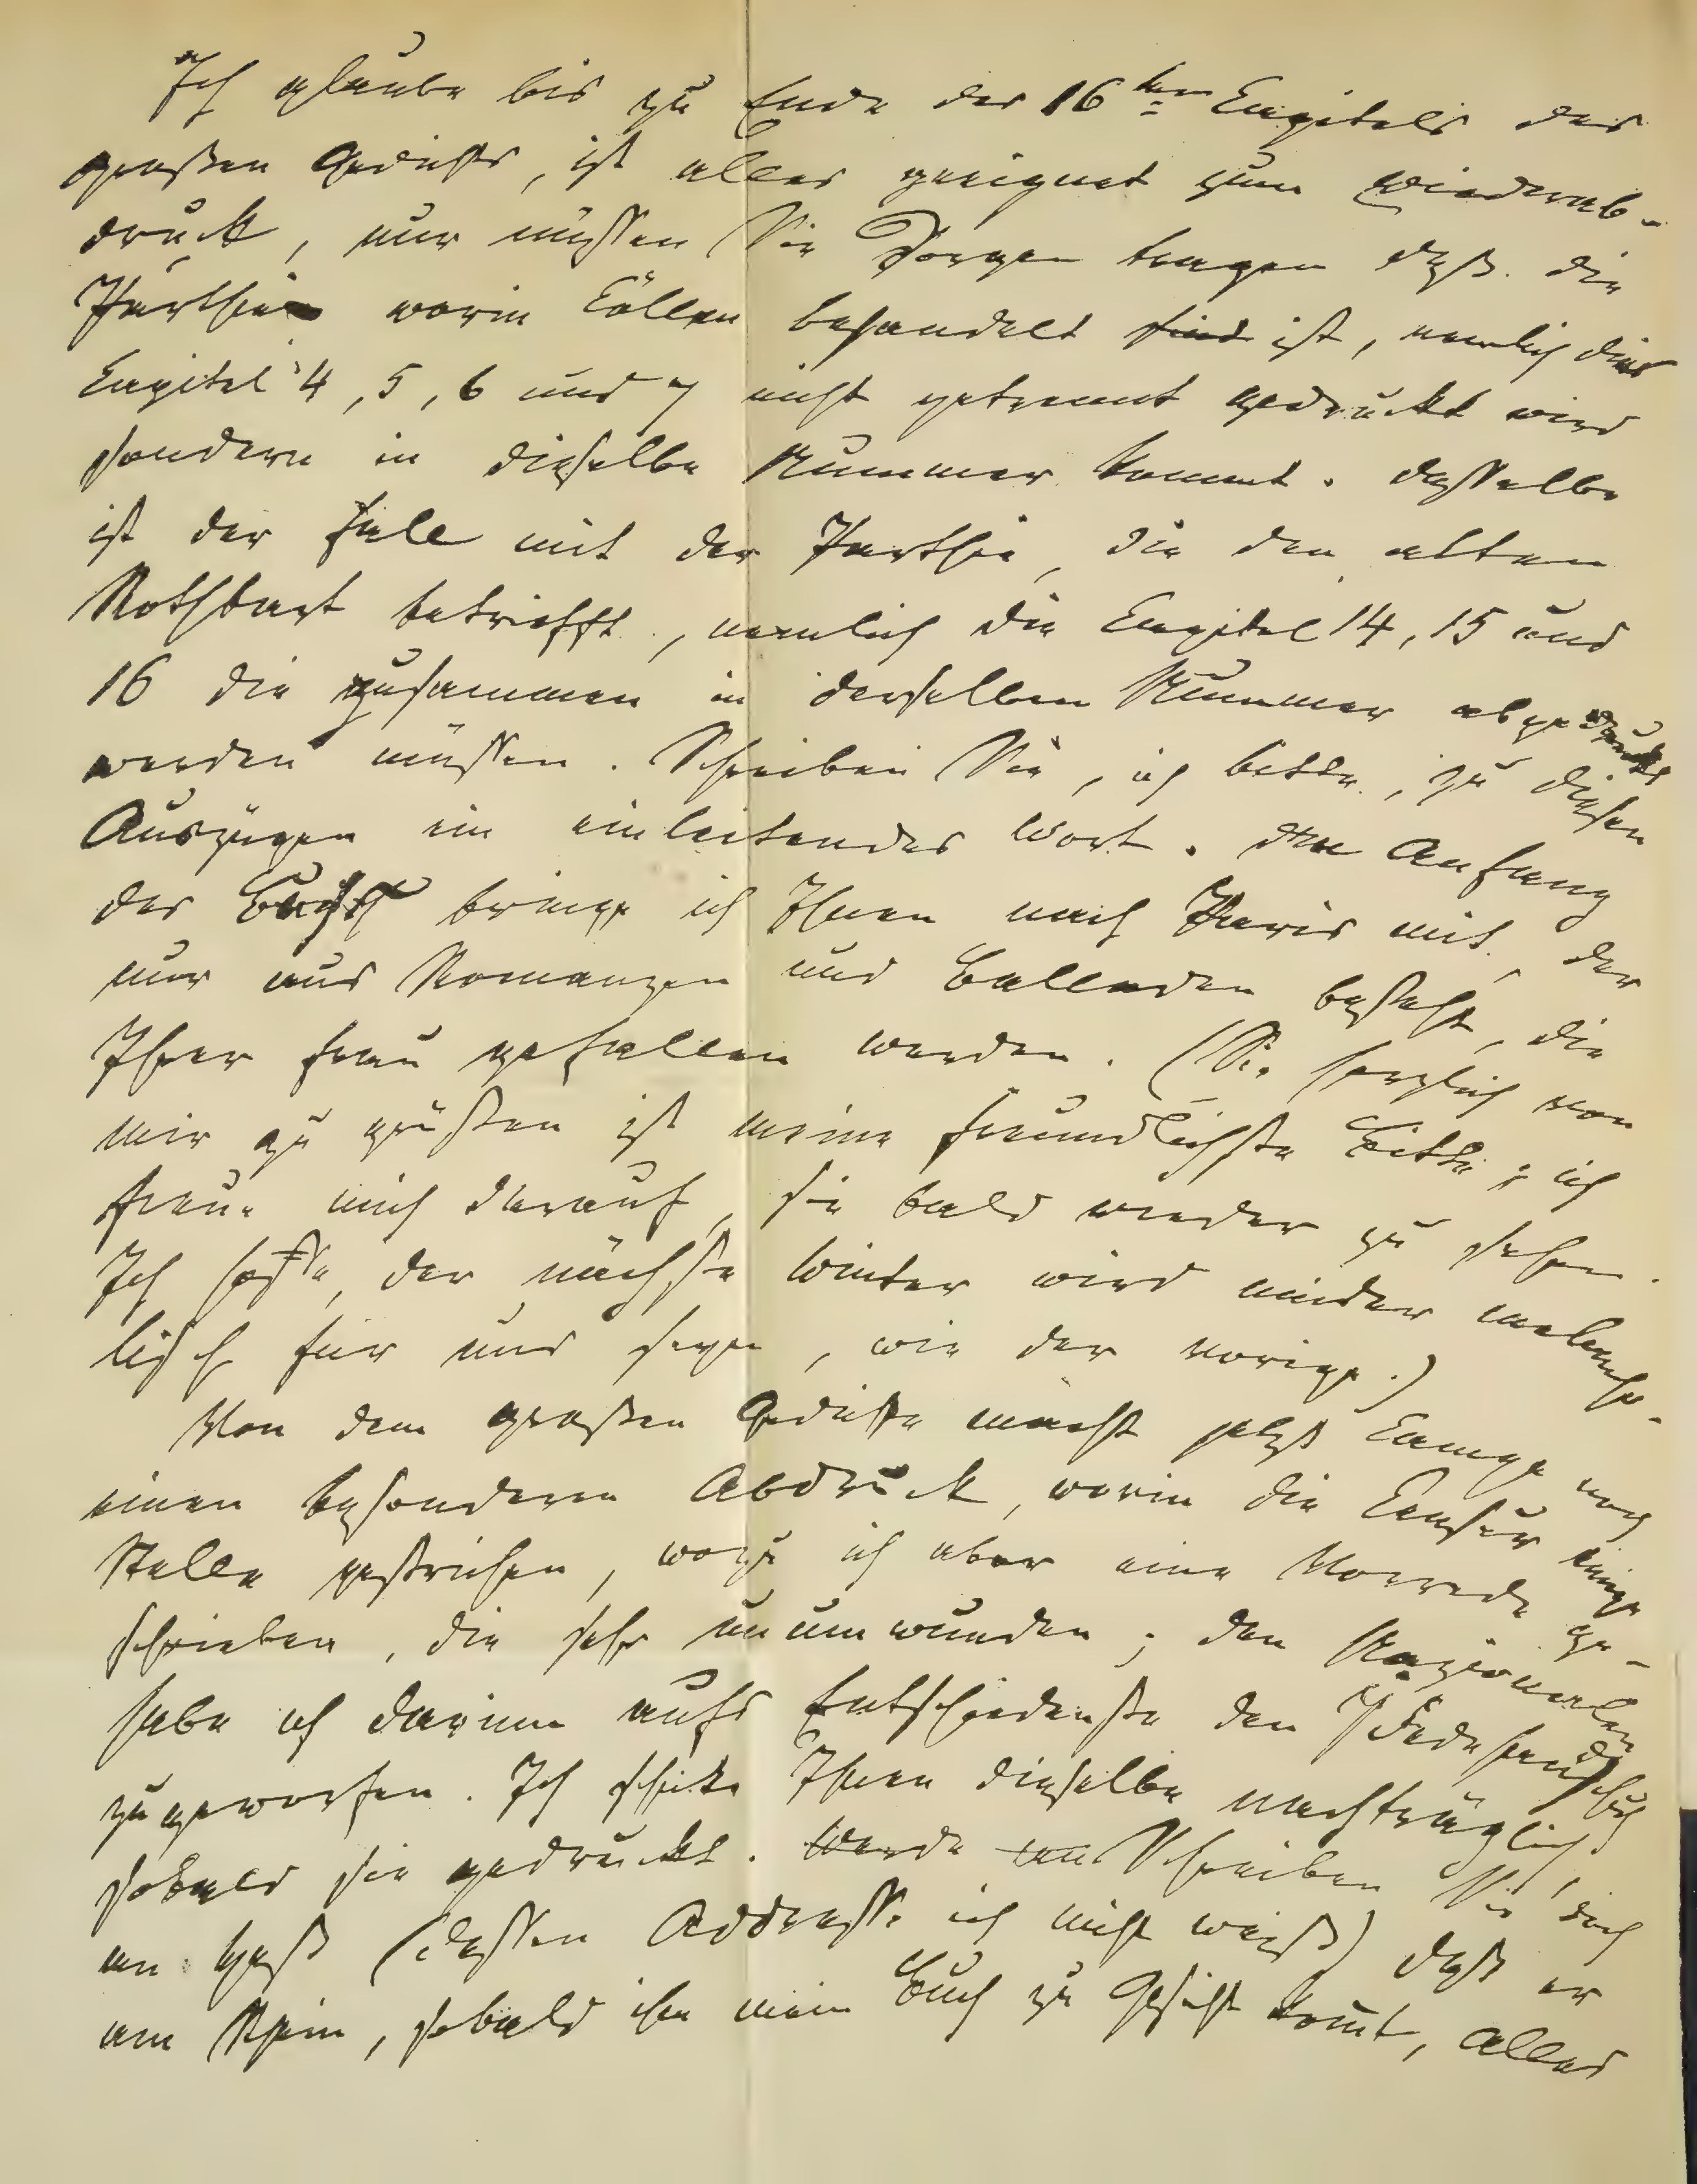 Ich glaube bis zu Ende des 16ten Capitels des
großen Gedichts, ist alles geeignet zum Wiederab-
druck, nur müssen Sie Sorgen tragen daß die
Parthie worin Cöllen behandelt sind ist, nemlich die
Capitel 4, 5, 6 und 7 nicht getrennt gedruckt wird
sondern in dieselbe Nummer kommt. Dasselbe
ist der Fall mit der Parthie, die den alten
Rothbart betrifft, nemlich die Capitel 14, 15 und
16 die zusammen in derselben Nummer abgedruckt
werden müssen. Schreiben Sie, ich bitte, zu diesen
Auszügen ein einleitendes Wort. Den Anfang
des Buchs bringe ich Ihnen nach Paris mit, der
nur aus Romanzen und Balladen besteht, die
Ihrer Frau gefallen werden. (Sie herzlich von
mir zu grüßen ist meine freundlichste Bitte; ich
freue mich darauf, sie bald wieder zu sehen.
Ich hoffe, der nächste Winter wird minder melancho-
lisch für uns seyn, wie der vorige.)
Von dem großen Gedichte macht jetzt Campe noch
einen besonderen Abdruck, worin die Censur einige
Stelle gestrichen, wozu ich aber eine Vorrede ge-
schrieben, die sehr unumwunden; den Nazionalen
habe ich darinn aufs Entschiedenste den Fedehandschuh
zugeworfen. Ich schicke Ihnen dieselbe nachträglich,
sobald sie gedruckt. Schreiben Sie doch
an Heß (dessen Addresse ich nicht weiß) daß er
am Rhein, sobald ihm mein Buch zu Gesicht kömt, alles